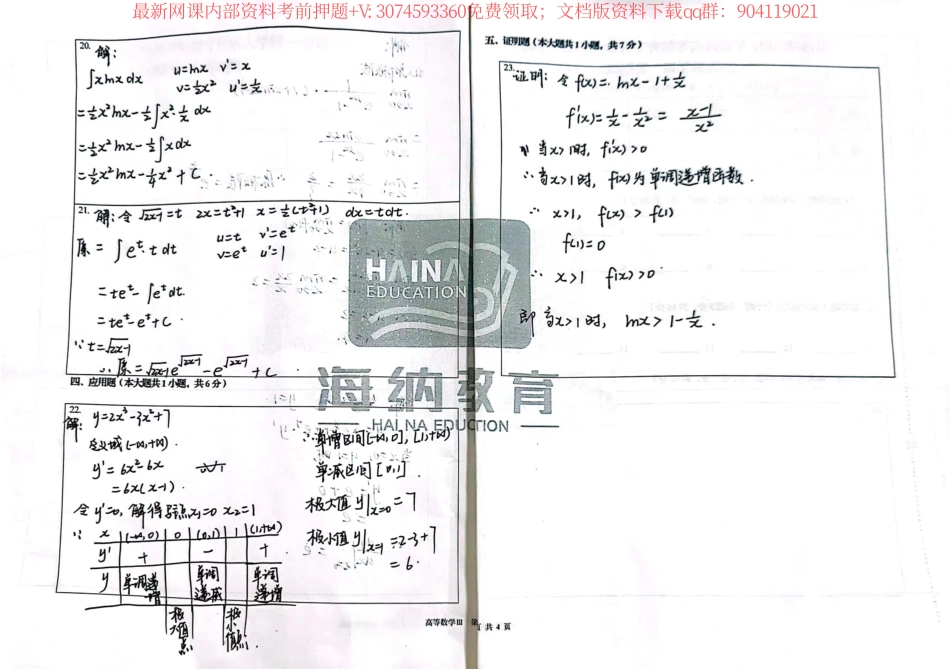 最新网课内部资料考前押题+V: 3074593360免费领取；文档版资料下载qq群：904119021
20. 解:
∫xlnxdx  u=lnx v'=x
v=½x² u'=1/x
=½x²lnx-½∫x²·1/x dx
=½x²lnx-½∫xdx
=½x²lnx-¼x²+C.
21. 解:令√2x-1=t 2x=t²+1 x=½(t²+1) dx=tdt.
原=∫eᵗ·tdt  u=t v'=eᵗ
v=eᵗ u'=1
=teᵗ-∫eᵗdt.
=teᵗ-eᵗ+C.
∵t=√2x-1
∴原=√2x-1e^√2x-1-e^√2x-1+C
四、应用题（本大题共1小题，共6分）
22.
解: y=2x³-3x²+7
定义域(-∞,+∞).
y'=6x²-6x
=6x(x-1).
令y'=0,解得驻点x₁=0 x₂=1
∵ x (-∞,0) 0 (0,1) 1 (1,+∞)
y' + - +
y 单调递增 单调递减 单调递增
极大值点 极小值点.
∴单增区间(-∞,0],[1,+∞)
单减区间[0,1].
极大值y|x=0=7
极小值y|x=1=2-3+7
=6.
五、证明题（本大题共1小题，共7分）
23. 证明: 令f(x)=lnx-1+1/x
f'(x)=1/x-1/x²=(x-1)/x²
当x>1时, f'(x)>0
∴当x>1时, f(x)为单调递增函数.
∵x>1, f(x)>f(1)
f(1)=0
∴x>1 f(x)>0
即当x>1时, lnx>1-1/x.
HAINA
EDUCATION
海纳教育
HAI NA EDUCTION
高等数学Ⅲ 第
页 共 4 页